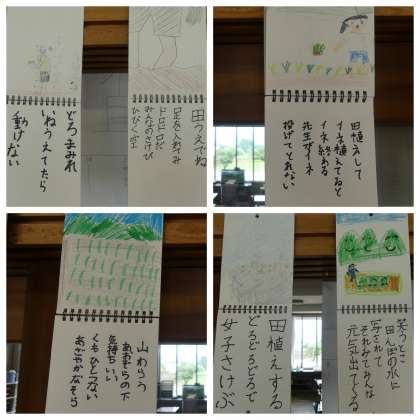 田うえでね
足を入れてみ
ドロドロだ
みんなのさけび
ひびく空
どろまみれ
いねうえてたら
動けない
田植えして
イネ植えてると
イネ終わる
先生がイネ
投げてとれない
山わらう
あおぞらの下
気持ちいい
くもひとつない
あざやかなそら
笑うとこ
田んぼの水に
写されて
それみてみんな
元気出てくる
田植えする
どろどろどろで
女子さけぶ